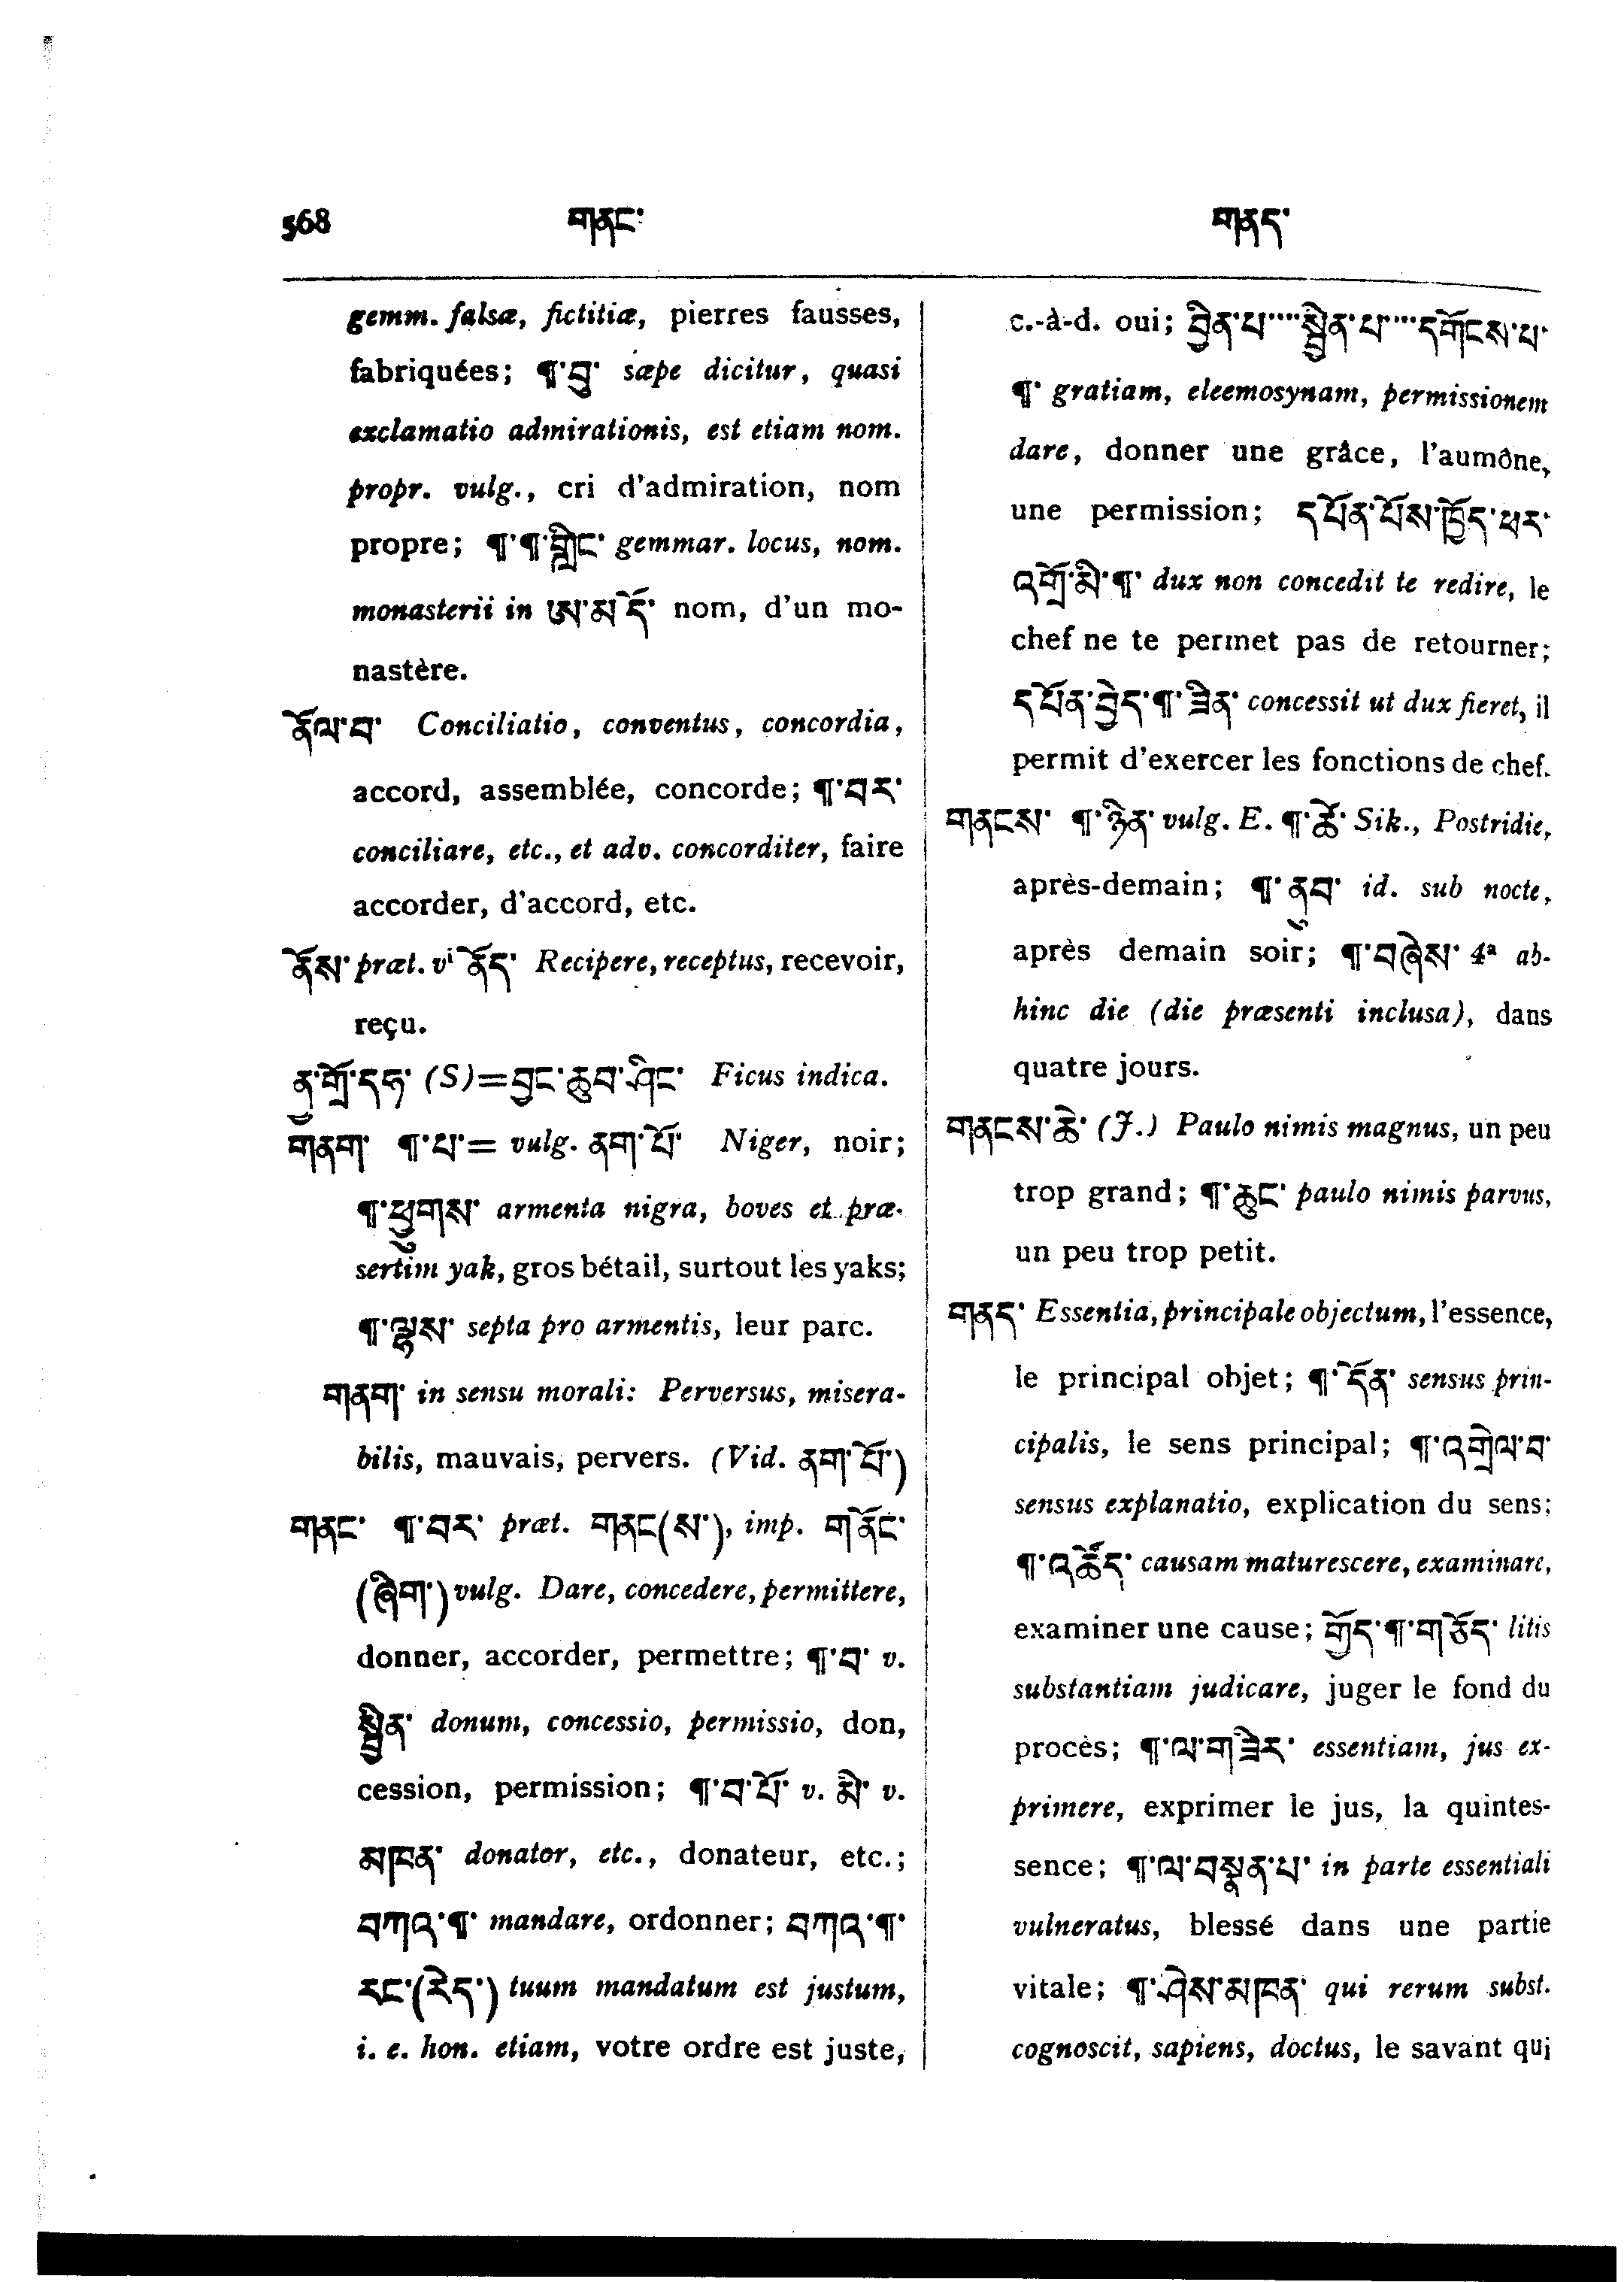 568 གནང་ གནད་
gemm. falsæ, fictitiæ, pierres fausses,
fabriquées; ¶་བུ་ sæpe dicitur, quasi
exclamatio admirationis, est etiam nom.
propr. vulg., cri d'admiration, nom
propre; ¶་¶་གླིང་ gemmar. locus, nom.
monasterii in ཨ་མདོ་ nom, d'un mo-
nastère.
ནོལ་བ་ Conciliatio, conventus, concordia,
accord, assemblée, concorde; ¶་བར་
conciliare, etc., et adv. concorditer, faire
accorder, d'accord, etc.
ནོས་ præt. vⁱ ནོད་ Recipere, receptus, recevoir,
reçu.
ནྱ་གྲོ་དཧ་ (S)=བྱང་ཆུབ་ཤིང་ Ficus indica.
གནག་ ¶་པ་= vulg. ནག་པོ་ Niger, noir;
¶་ཕྱུགས་ armenta nigra, boves et præ-
sertim yak, gros bétail, surtout les yaks;
¶་ལྷས་ septa pro armentis, leur parc.
གནག་ in sensu morali: Perversus, misera-
bilis, mauvais, pervers. (Vid. ནག་པོ་)
གནང་ ¶་བར་ præt. གནང(ས་), imp. གནོང་
(ཞིག་) vulg. Dare, concedere, permittere,
donner, accorder, permettre; ¶་བ་ v.
སྦྱིན་ donum, concessio, permissio, don,
cession, permission; ¶་བ་པོ་ v. མི་ v.
མཁན་ donator, etc., donateur, etc.;
བཀའ་¶་ mandare, ordonner; བཀའ་¶་
རང་(རེད་) tuum mandatum est justum,
i. e. hon. etiam, votre ordre est juste,
c.-à-d. oui; བྱིན་པ་་་་སྦྱིན་པ་་་་དགོངས་པ་
¶་ gratiam, eleemosynam, permissionem
dare, donner une grâce, l'aumône,
une permission; དཔོན་པོས་ཁྱོད་ཕར་
འགྲོ་མི་¶་ dux non concedit te redire, le
chef ne te permet pas de retourner;
དཔོན་བྱེད་¶་ཟིན་ concessit ut dux fieret, il
permit d'exercer les fonctions de chef.
གནངས་ ¶་ཉིན་ vulg. E. ¶་ཚེ་ Sik., Postridie,
après-demain; ¶་ནུབ་ id. sub nocte,
après demain soir; ¶་བཞེས་ 4ª ab-
hinc die (die præsenti inclusa), dans
quatre jours.
གནངས་ཆེ་ (J.) Paulo nimis magnus, un peu
trop grand; ¶་ཆུང་ paulo nimis parvus,
un peu trop petit.
གནད་ Essentia, principale objectum, l'essence,
le principal objet; ¶་དོན་ sensus prin-
cipalis, le sens principal; ¶་འགྲེལ་བ་
sensus explanatio, explication du sens;
¶་འཚོད་ causam maturescere, examinare,
examiner une cause; གྱོད་¶་གཅོད་ litis
substantiam judicare, juger le fond du
procès; ¶་ལ་གཟེར་ essentiam, jus ex-
primere, exprimer le jus, la quintes-
sence; ¶་ལ་བསྣུན་པ་ in parte essentiali
vulneratus, blessé dans une partie
vitale; ¶་ཤེས་མཁན་ qui rerum subst.
cognoscit, sapiens, doctus, le savant qui